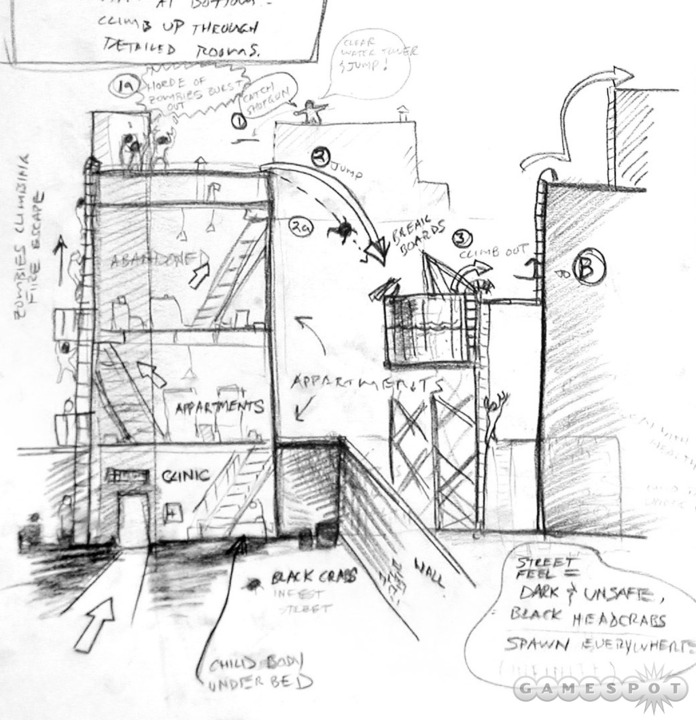 AT BOTTOM -
CLIMB UP THROUGH
DETAILED ROOMS.
1a
HORDE OF
ZOMBIES BURST
OUT
1
CATCH
SHOTGUN
CLEAR
WATER TOWER
& JUMP!
2
JUMP
2a
BREAK
BOARDS
3
CLIMB OUT
B
ZOMBIES CLIMBING
FIRE ESCAPE
ABANDONED
APPARTMENTS
APPARTMENTS
CLINIC
WALL
BLACK CRABS
INFEST
STREET
CHILD BODY
UNDER BED
STREET
FEEL =
DARK & UNSAFE,
BLACK HEADCRABS
SPAWN EVERYWHERE
GAMESPOT